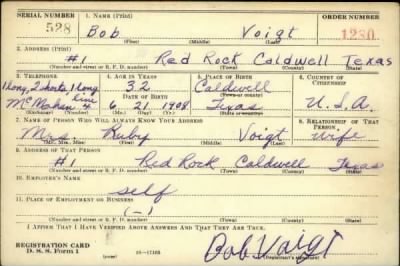 SERIAL NUMBER 1. NAME (Print) ORDER NUMBER
528 Bob Voigt 1230
(First) (Middle) (Last)
2. ADDRESS (Print)
#1 Red Rock Caldwell Texas
(Number and street or R. F. D. number) (Town) (County) (State)
3. TELEPHONE 4. AGE IN YEARS 5. PLACE OF BIRTH 6. COUNTRY OF CITIZENSHIP
1 long, 2 shorts, 1 long 32 Caldwell
line DATE OF BIRTH (Town or county)
McMahan 6 21 1908 Texas U.S.A.
(Exchange) (Number) (Mo.) (Day) (Yr.) (State or country)
7. NAME OF PERSON WHO WILL ALWAYS KNOW YOUR ADDRESS 8. RELATIONSHIP OF THAT PERSON
Mrs. Ruby Voigt Wife
(Mr., Mrs., Miss) (First) (Middle) (Last)
9. ADDRESS OF THAT PERSON
#1 Red Rock Caldwell Texas
(Number and street or R. F. D. number) (Town) (County) (State)
10. EMPLOYER'S NAME
self
11. PLACE OF EMPLOYMENT OR BUSINESS
(-)
(Number and street or R. F. D. number) (Town) (County) (State)
I AFFIRM THAT I HAVE VERIFIED ABOVE ANSWERS AND THAT THEY ARE TRUE.
REGISTRATION CARD
D. S. S. Form 1 Bob Voigt
(Registrant's signature)